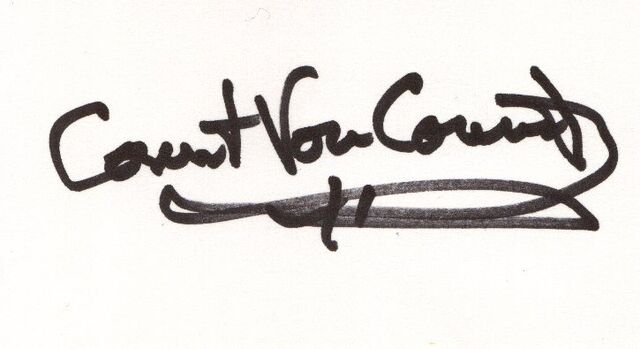 Count Von Count